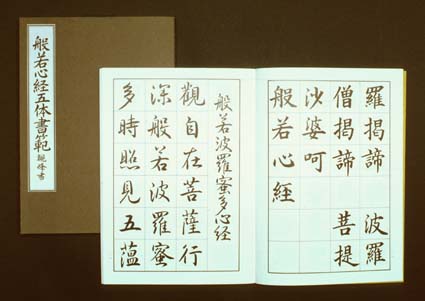 般若心経五体書範
羅揭諦 波羅
僧揭諦 菩提
沙婆呵
般若心經
般若波羅蜜多心經
觀自在菩薩行
深般若波羅蜜
多時照見五蘊